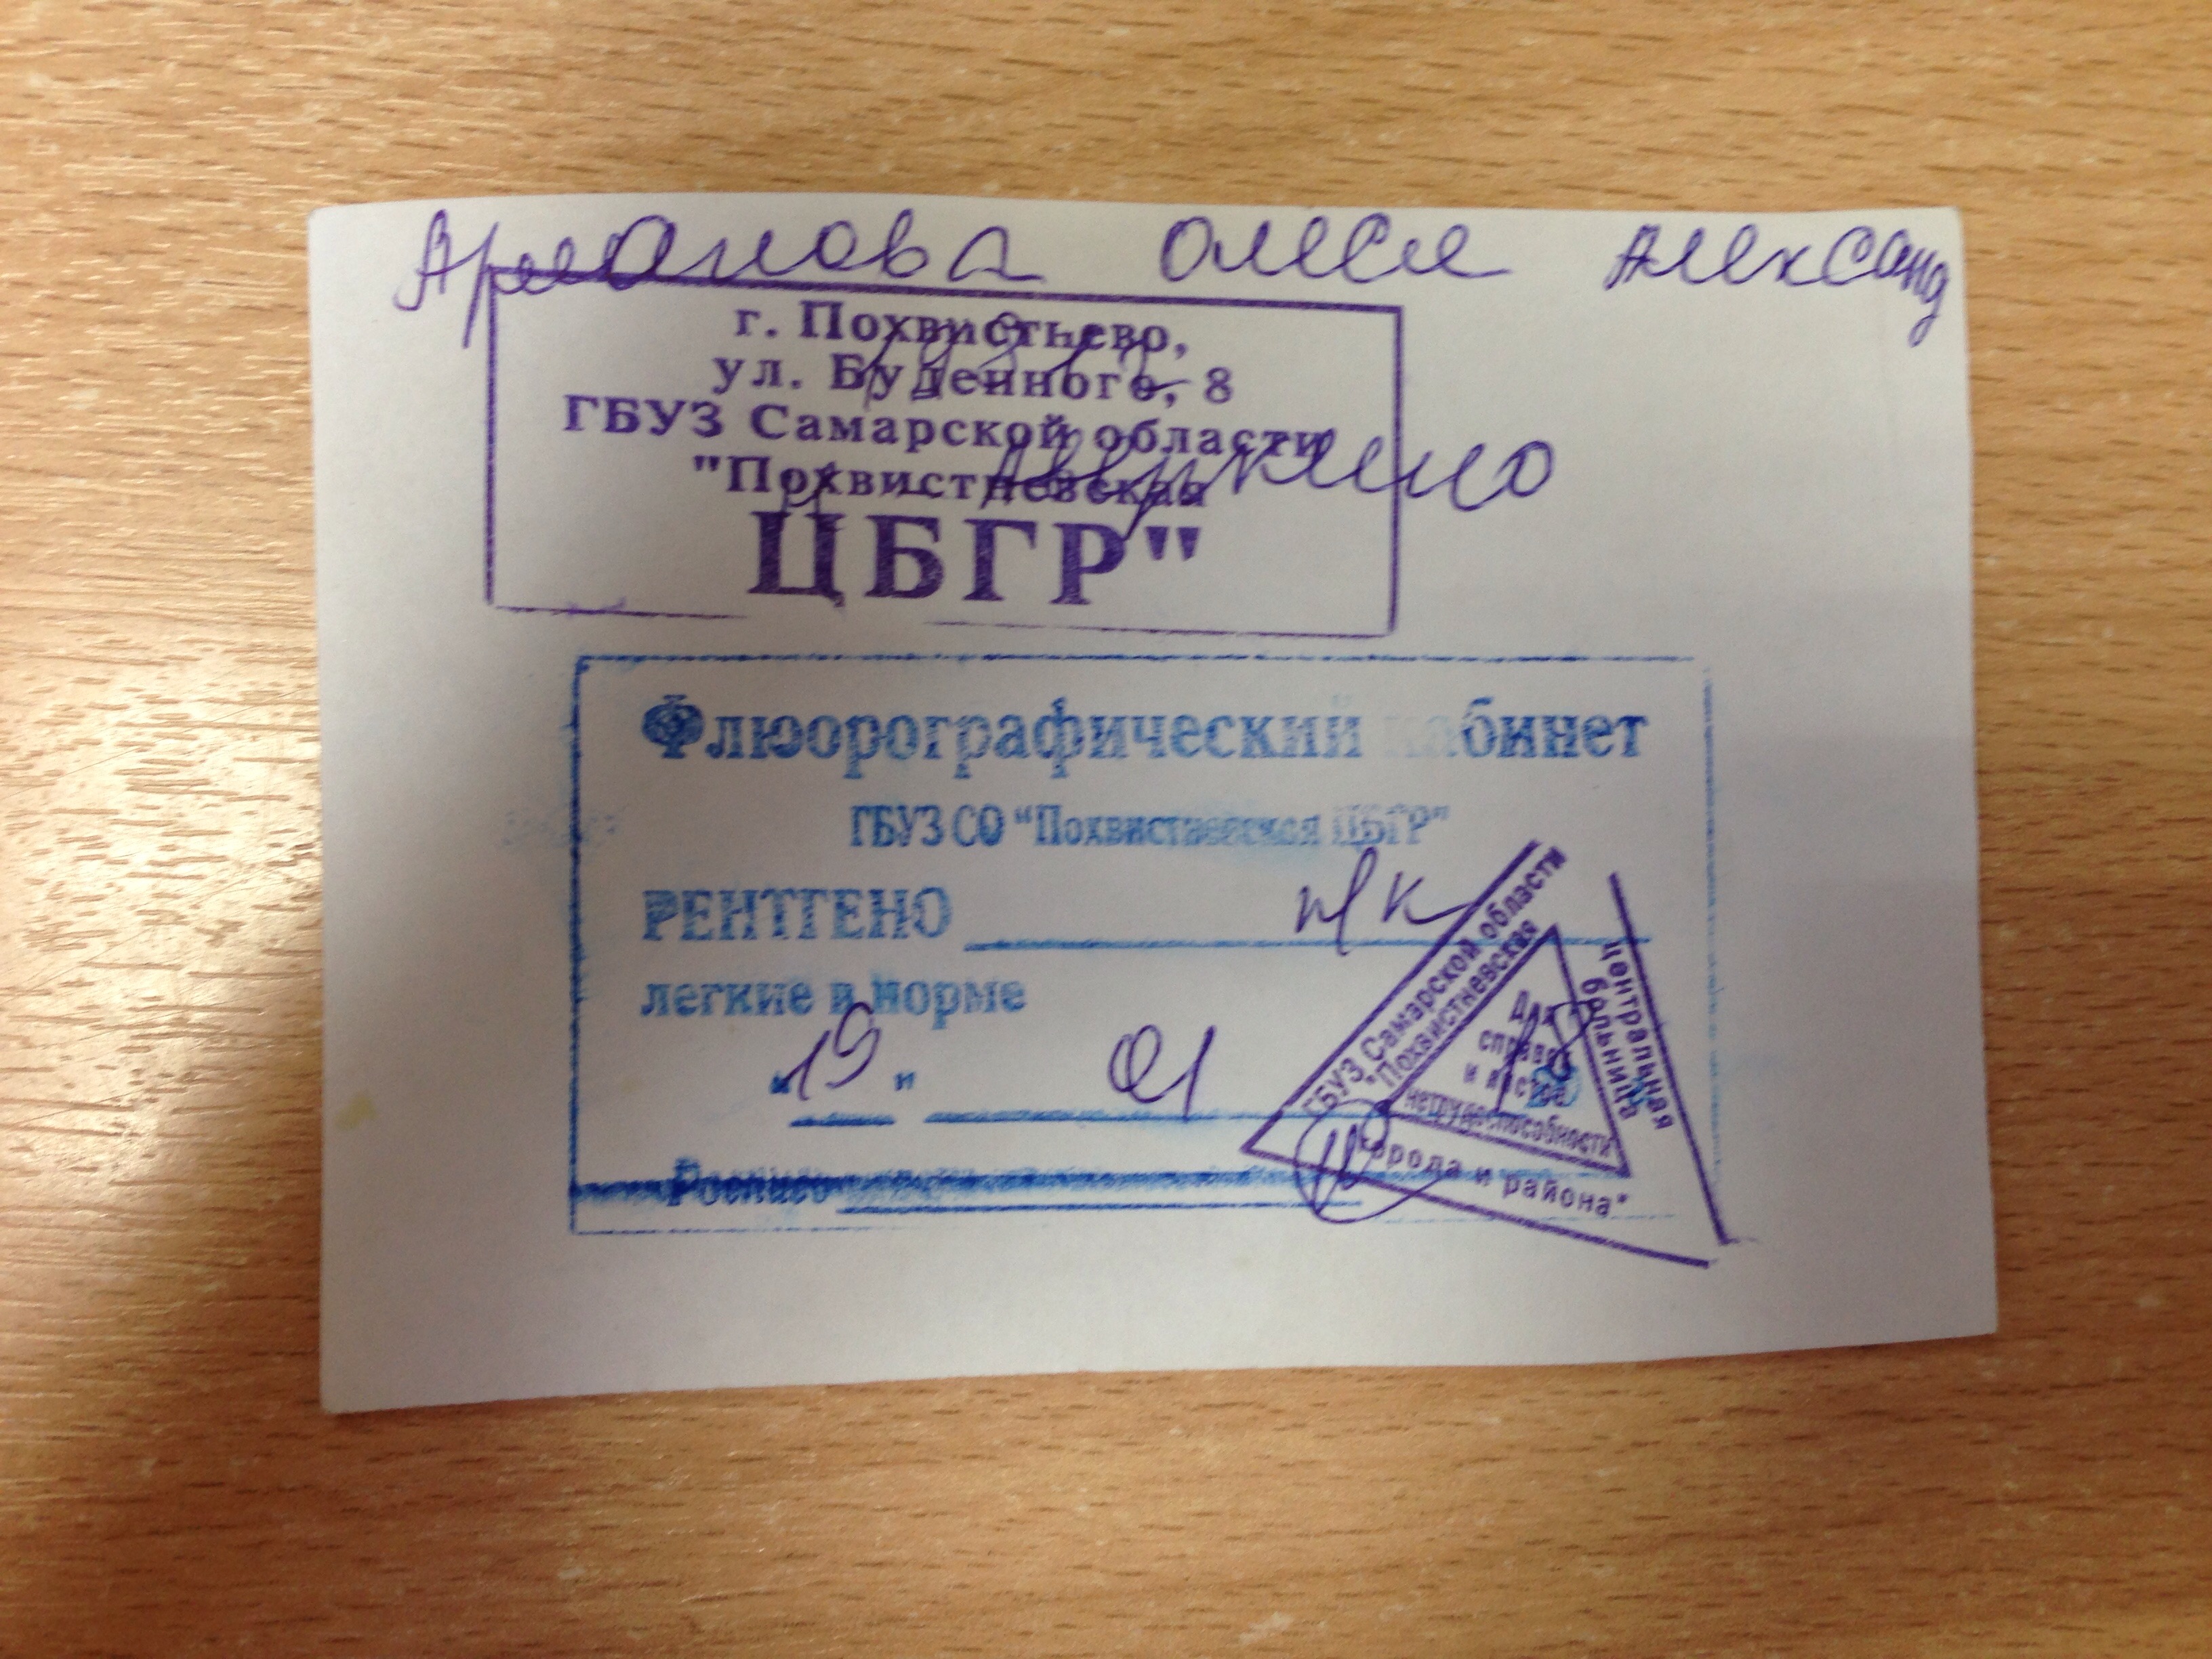 Арланова Олеся Александ
г. Похвистнево,
ул. Буденного, 8
ГБУЗ Самарской области
"Похвистневская
ЦБГР"
Аверкино
Флюорографический кабинет
ГБУЗ СО "Похвистневская ЦБГР"
РЕНТГЕНО
легкие в норме
"19" 01
Роспись
ГБУЗ Самарской области
"Похвистневская
центральная
больница
города и района"
Для
справок
и листков
нетрудоспособности